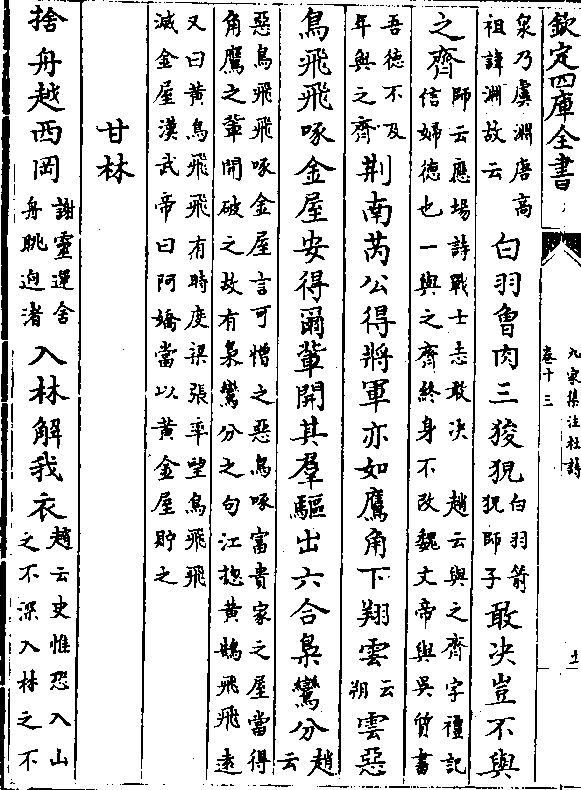 欽定四庫全書
九家集注杜詩
卷十三
泉乃虞淵唐高
祖諱淵故云
白羽曾肉三狻猊
白羽箭
猊師子
敢决豈不與
之齊
師云應瑒詩戰士志敢决　趙云與之齊字禮記
信婦德也一與之齊終身不改魏文帝與吳質書
吾德不及
年與之齊
荆南芮公得將軍亦如鷹角下翔雲
云
朔
雲惡
鳥飛飛啄金屋安得爾輩開其羣驅出六合梟鸞分
趙
云
惡鳥飛飛啄金屋言可憎之惡鳥啄富貴家之屋當得
角鷹之輩開破之故有梟鸞分之句江揔黄鵠飛飛逺
又曰黄鳥飛飛有時度梁張率望鳥飛飛
滅金屋漢武帝曰阿嬌當以黄金屋貯之
甘林
捨舟越西岡
謝靈運舍
舟眺迥渚
入林解我衣
趙云史惟恐入山
之不深入林之不